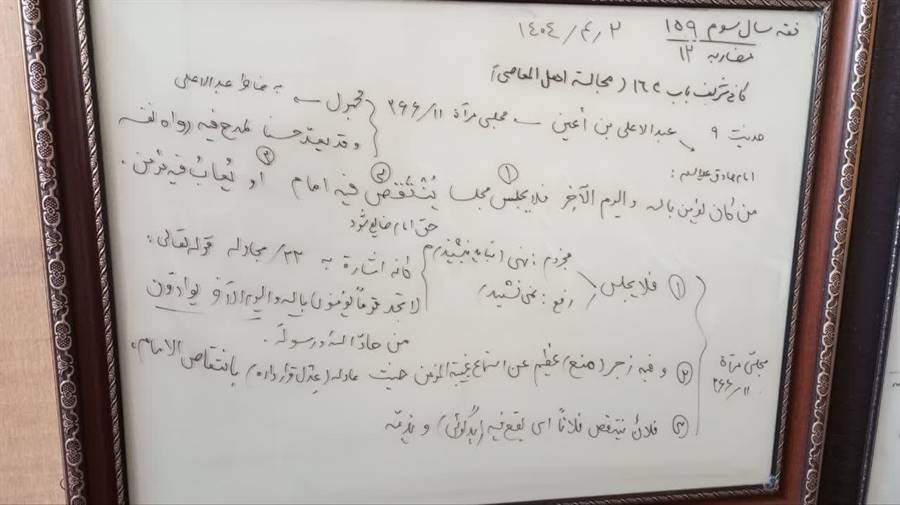 فقه سال سوم ۱۵۹ ۱۴۰۴/۴/۲
مضاربه ۱۲
کافی شریف باب ۱۶۴ (مجالسة اهل المعاصی)
حدیث ۹ عبدالاعلی بن أعین ← مجلسی مرآة ۲۶۶/۱۱ مجهول ← به خاطر عبدالاعلی
و قد یعدّ حسنا لمدح فیه رواه نفسه
امام صادق علیه السلام:
من کان یؤمن بالله والیوم الآخر فلا یجلس مجلسا یُنْتَقَصُ فیه امام او یُعابُ فیه مؤمن.
① ③ ②
حق امام ضایع شود
① فلا یجلس مجزوم: نهی انباید بنشیند
رفع: نمی نشیند
کانه اشارة به ۲۲/ مجادله قوله تعالی:
لا تجد قوماً یؤمنون بالله والیوم الآخر یوادّون
من حادّ الله و رسوله.
مجلسی مرآة ۲۶۶/۱۱
② و فیه زجر (منع) عظیم عن استماع غیبة المؤمن حیث عادله (عِدل قرار داده) بانتقاص الامام.
③ فلان ینتقص فلاناً ای یقع فیه (بدگوئی) و یذمّه